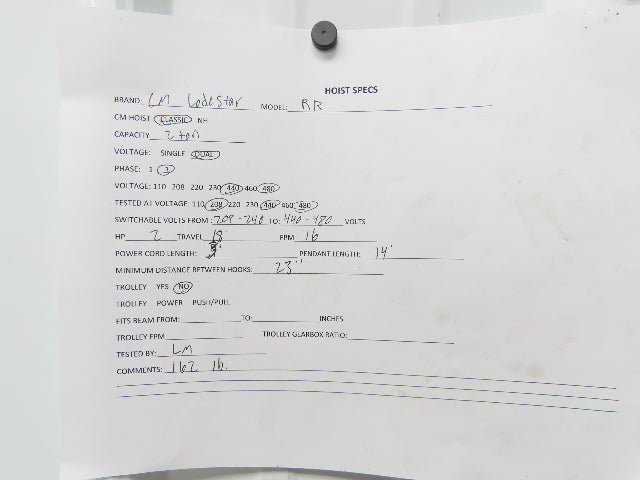 HOIST SPECS
BRAND: CM Lodestar MODEL: RR
CM HOIST CLASSIC NH
CAPACITY 2 ton
VOLTAGE: SINGLE DUAL
PHASE: 1 3
VOLTAGE: 110 208 220 230 440 460 480
TESTED AT VOLTAGE: 110 208 220 230 440 460 480
SWITCHABLE VOLTS FROM: 208-240 TO: 440-480 VOLTS
HP 2 TRAVEL 18' FPM 16
POWER CORD LENGTH: PENDANT LENGTH: 14'
MINIMUM DISTANCE BETWEEN HOOKS: 23"
TROLLEY YES NO
TROLLEY POWER PUSH/PULL
FITS BEAM FROM: TO: INCHES
TROLLEY FPM TROLLEY GEARBOX RATIO:
TESTED BY: LM
COMMENTS: 162 lb.